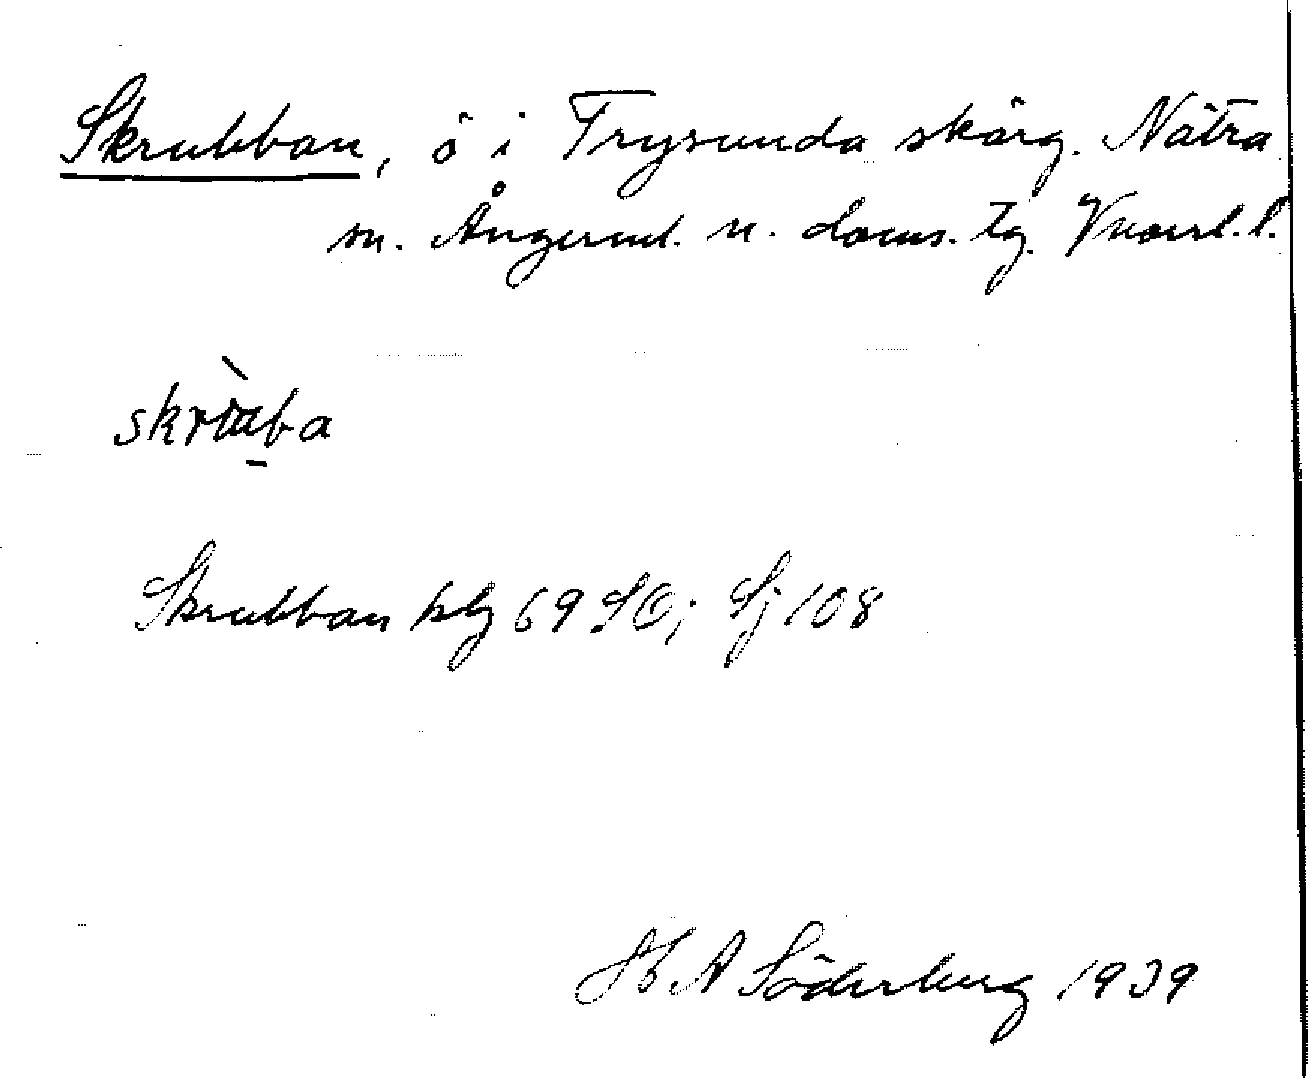 Skrubban, ö i Trysunda skärg. Nätra
sn. Ångerml. n. doms. tg. Vnorrl. l.
skrùba
Skrubban klg 69 SO; Sj 108
H A Söderberg 1939